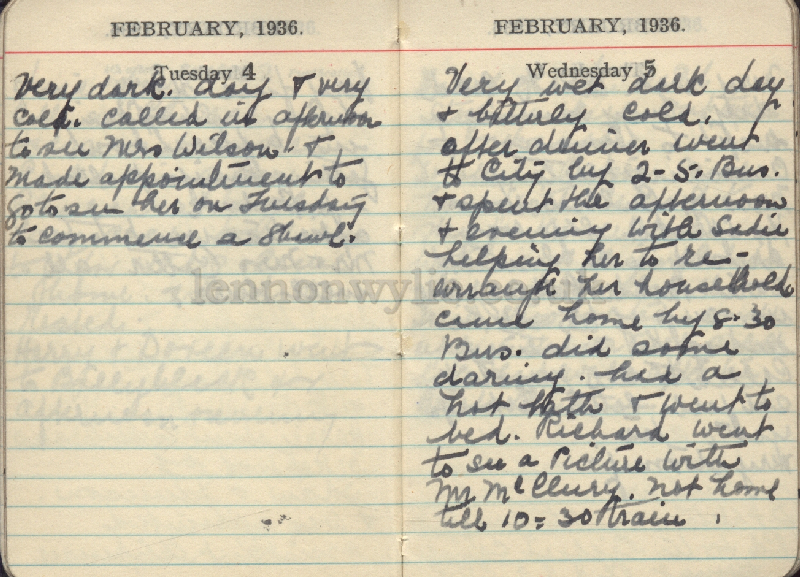 FEBRUARY, 1936.
Tuesday 4
Very dark. day & very
cold. Called in afternoon
to see Mrs Wilson. &
made appointment to
go to see her on Tuesday
to commence a Shawl.
FEBRUARY, 1936.
Wednesday 5
Very wet dark day
& bitterly cold.
after dinner went
to City by 2-5. Bus.
& spent the afternoon
& evening with Sadie
helping her to re-
arrange her household
came home by 8-30
Bus. did some
darning. had a
hot bath & went to
bed. Richard went
to see a Picture with
Mr McClury. not home
till 10=30 train.
lennonwylie.co.uk